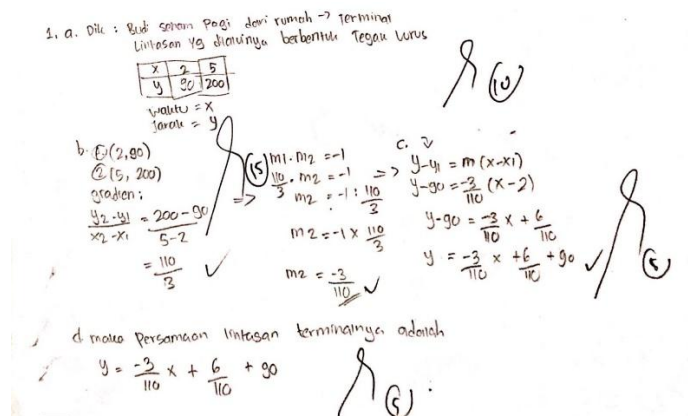 1. a. Dik : Budi setiap pagi dari rumah → Terminal
Lintasan yg dilaluinya berbentuk Tegak lurus
x 2 5
y 90 200
waktu = x
Jarak = y
10
b. ① (2,90)
② (5, 200)
gradien :
y2-y1 / x2-x1 = 200-90 / 5-2
= 110/3 ✓
15
=> m1 . m2 = -1
110/3 . m2 = -1
m2 = -1 : 110/3
m2 = -1 x 110/3
m2 = -3/110 ✓
c.
=> y-y1 = m (x-x1)
y-90 = -3/110 (x-2)
y-90 = -3/110 x + 6/110
y = -3/110 x +6/110 +90 ✓
5
d. maka Persamaan lintasan terminalnya adalah
y = -3/110 x + 6/110 + 90
5